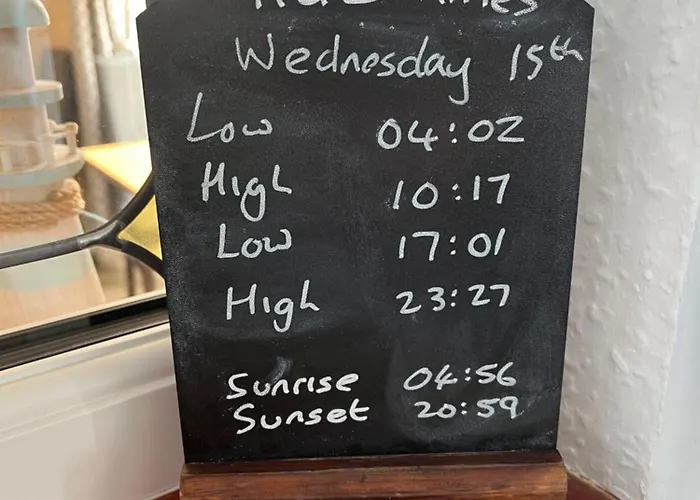 Tide Times
Wednesday 15th
Low 04:02
High 10:17
Low 17:01
High 23:27
Sunrise 04:56
Sunset 20:59